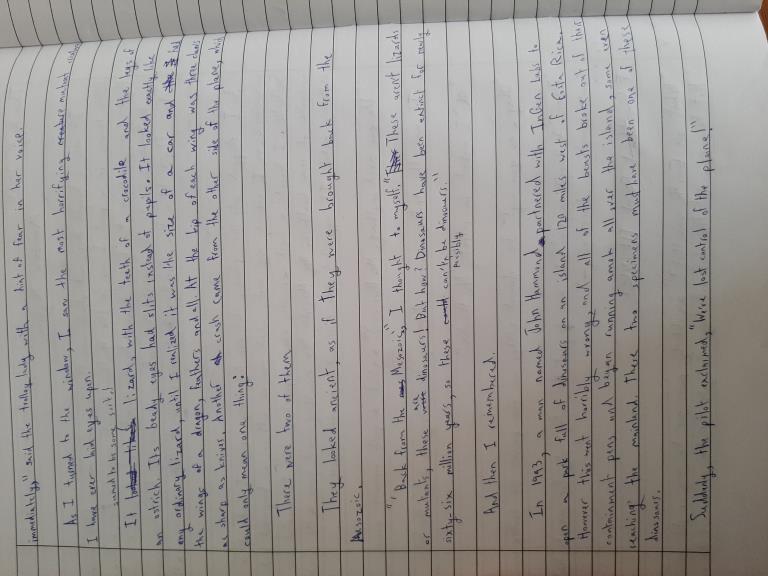 immediately," said the trolley lady with a hint of fear in her voice.
As I turned to the window, I saw the most horrifying mutant
I have ever laid eyes upon.
seemed to be some sort of
It lizard, with the teeth of a crocodile and the legs of
an ostrich. Its beady eyes had slits instead of pupils. It looked exactly like
any ordinary lizard, until I realized it was the size of a car and had
the wings of a dragon, feathers and all. At the tip of each wing was three claws
as sharp as knives. Another crash came from the other side of the plane, which
could only mean one thing:
There were two of them.
They looked ancient, as if they were brought back from the
Mesozoic.
"Back from the Mesozoic", I thought to myself. "These aren't lizards
or mutants, these are dinosaurs! But how? Dinosaurs have been extinct for nearly
sixty-six million years, so these can't be dinosaurs."
possibly
And then I remembered.
In 1993, a man named John Hammond partnered with InGen Labs to
open a park full of dinosaurs on an island 120 miles west of Costa Rica.
However this went horribly wrong, and all of the beasts broke out of their
containment pens and began running amok all over the island, some even
reaching the mainland. These two specimens must have been one of these
dinosaurs.
Suddenly, the pilot exclaimed, "We've lost control of the plane!"